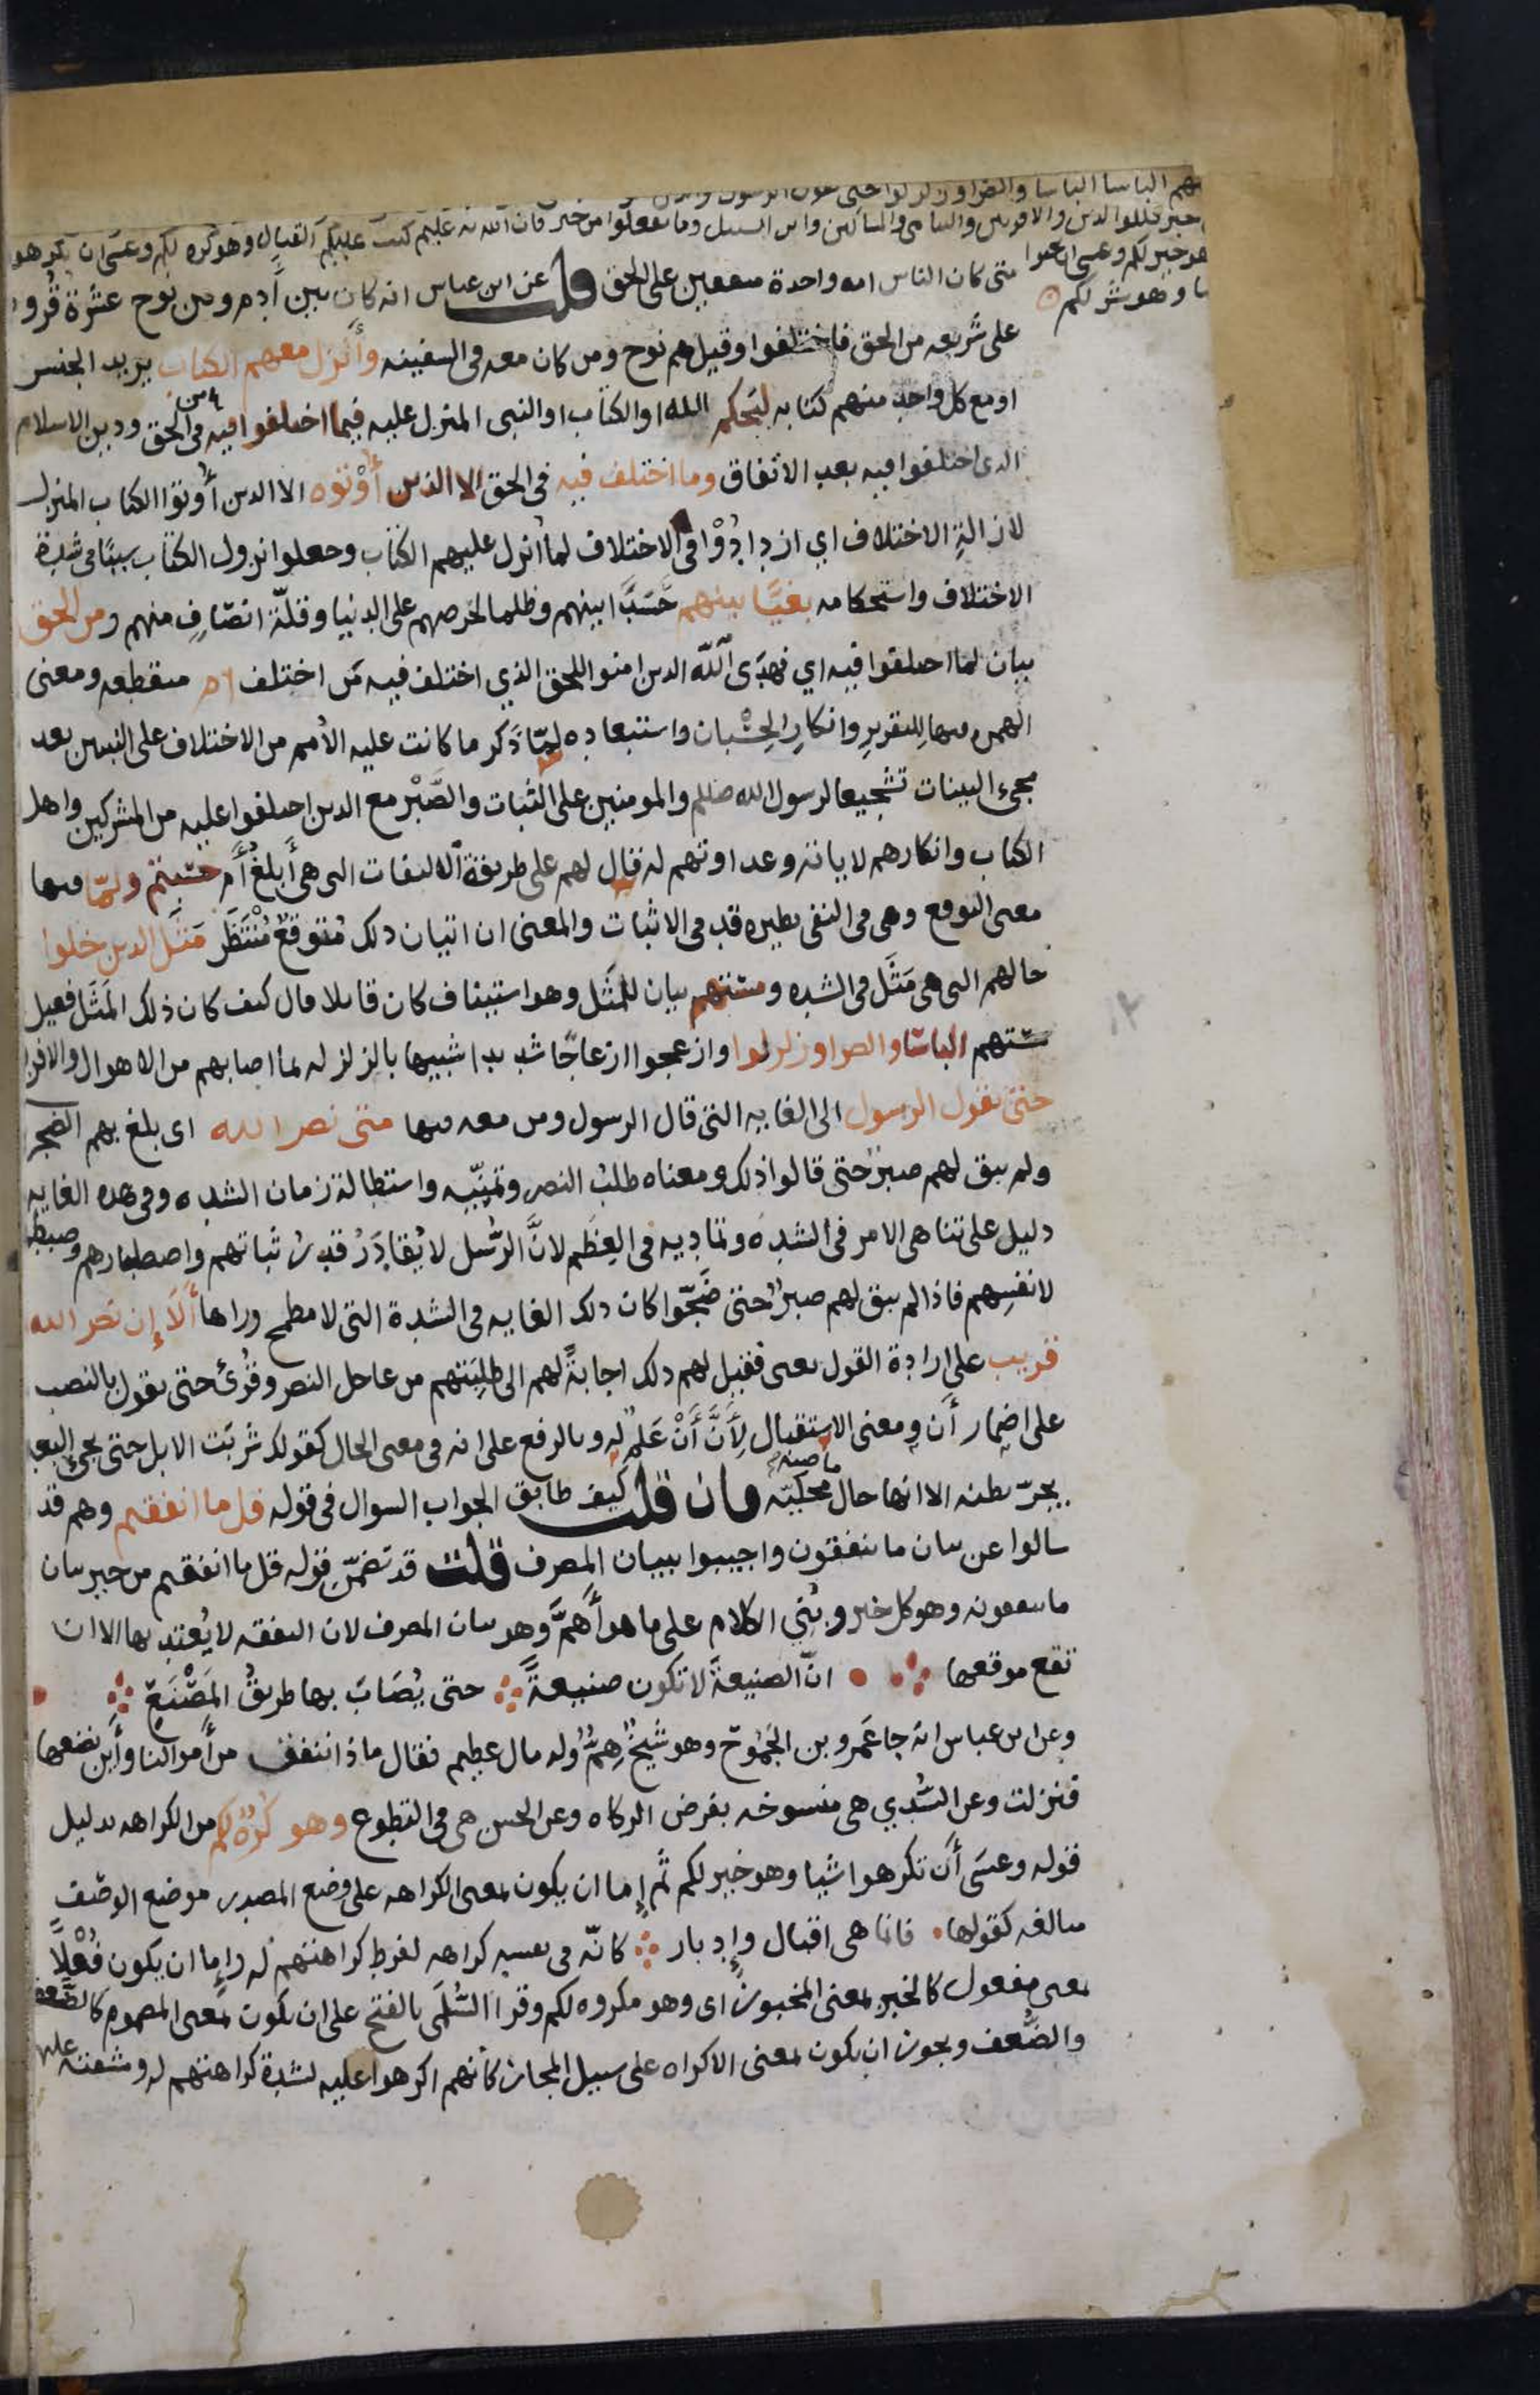 هم الباسا الباسا والضرا وزلزلوا حتى يقول الرسول والذين
خير فللوالدين والاقربين واليتامى والمساكين وابن السبيل وما تفعلوا من خير فان الله به عليم كتب عليكم القتال وهو كره لكم وعسى ان تكرهوا
هو خير لكم وعسى ان تحبوا
ا وهو شر لكم
متى كان الناس امه واحدة متفقين على الحق قلت عن ابن عباس انه كان بين آدم وبين نوح عشرة قرون
على شريعه من الحق فاختلفوا وقيل هم نوح ومن كان معه فى السفينه وأنزل معهم الكتاب يريد الجنس
او مع كل واحد منهم كتابه ليحكم الله او الكتاب او النبى المنزل عليه فيما اختلفوا فيه فى الحق ودين الاسلام
الذى اختلفوا فيه بعد الاتفاق وما اختلف فيه فى الحق الا الذين أوتوه الا الذين أوتوا الكتاب المنزل
لازالة الاختلاف اي ازدادوا فى الاختلاف لما أنزل عليهم الكتاب وجعلوا نزول الكتاب سببًا فى شدة
الاختلاف واستحكامه بغيًا بينهم حسدًا بينهم وظلما لحرصهم على الدنيا وقلّة انصاف منهم ومن الحق
بيان لما اختلفوا فيه اي فهدى الله الذين امنوا للحق الذي اختلف فيه من اختلف ام منقطعه ومعنى
الهمزه فيها للتقرير وانكار الحسبان واستبعاده لمّا ذكر ما كانت عليه الأمم من الاختلاف على النبيين بعد
مجىء البينات تشجيعا لرسول الله صلعم والمومنين على الثبات والصَّبْر مع الذين اختلفوا عليه من المشركين واهل
الكتاب وانكارهم لاياته وعداوتهم له قال لهم على طريقة الالتفات التى هى أبلغ أم حسبتم ولمّا فيها
معنى التوقع وهى فى النفى نظيره قد فى الاثبات والمعنى ان اتيان ذلك مُتوقعٌ مُنْتَظَر مَثَل الذين خلوا
حالهم التى هى مَثَل فى الشده ومستهم بيان للمَثَل وهو استيناف كان قايلا قال كيف كان ذلك المَثَل فقيل
مستهم الباسا والضرا وزلزلوا وازعجوا ازعاجًا شديدا شبيها بالزلزله لما اصابهم من الاهوال والافزا
حتى يقول الرسول الى الغايه التى قال الرسول ومن معه فيها متى نصر الله اى بلغ بهم الضجر
ولم يبق لهم صبرٌ حتى قالوا ذلك ومعناه طلب النصر وتمنّيه واستطالة زمان الشده وفى هذه الغايه
دليل على تناهى الامر فى الشده وتماديه فى العِظَم لانَّ الرُّسل لا يُقادَرُ قدر ثباتهم واصطبارهم وضبطهم
لانفسِهم فاذا لم يبق لهم صبرٌ حتى ضَجّوا كان ذلك الغايه فى الشدة التى لا مطمح وراها أَلَا إن نصر الله
قريب على ارادة القول يعنى فقيل لهم ذلك اجابةً لهم الى طلِبَتهم من عاجل النصر وقُرئ حتى يقول بالنصب
على اضمار أن ومعنى الاستقبال لأَنَّ أَنْ عَلَمٌ له وبالرفع على انه فى معنى الحال كقولك شربت الابل حتى يجىء البعير
يجرّ بطنه الا انها حال ماضيه محكيّه فان قلت كيف طابق الجواب السوال فى قوله قل ما انفقتم وهم قد
سالوا عن بيان ما ينفقون واجيبوا ببيان المصرف قلت قد تضمّن قوله قل ما انفقتم من خير بيان
ما ينفقونه وهو كل خير وبُني الكلام على ما هو أهمّ وهو بيان المصرف لان النفقه لا يُعتد بها الا ان
تقع موقعها انّ الصنيعةَ لا تكون صنيعةً حتى يُصَابَ بها طريقُ المَصْنَعِ
وعن ابن عباس انه جا عَمرو بن الجَمُوح وهو شيخٌ هِمٌّ وله مال عظيم فقال ماذا ننفق من أموالنا وأين نضعها
فنزلت وعن السُّدي هى منسوخه بفرض الزكاه وعن الحسن هى فى التطوع وهو كُرْهٌ لكم من الكراهه بدليل
قوله وعسَى أن تكرهوا شيا وهو خير لكم ثم إما ان يكون بمعنى الكراهه على وضع المصدر موضع الوصف
مبالغه كقولها فانما هى اقبال وإدبار كانّه فى نفسه كراهه لفرط كراهتهم له وإما ان يكون فُعْلًا
بمعنى مفعول كالخبز بمعنى المخبوز اى وهو مكروه لكم وقرا السُّلَمى بالفتح على ان يكون بمعنى المضموم كالضَّعف
والضُّعف ويجوز ان يكون بمعنى الاكراه على سبيل المجاز كانهم اكرهوا عليه لشدة كراهتهم له ومشقته عليهم